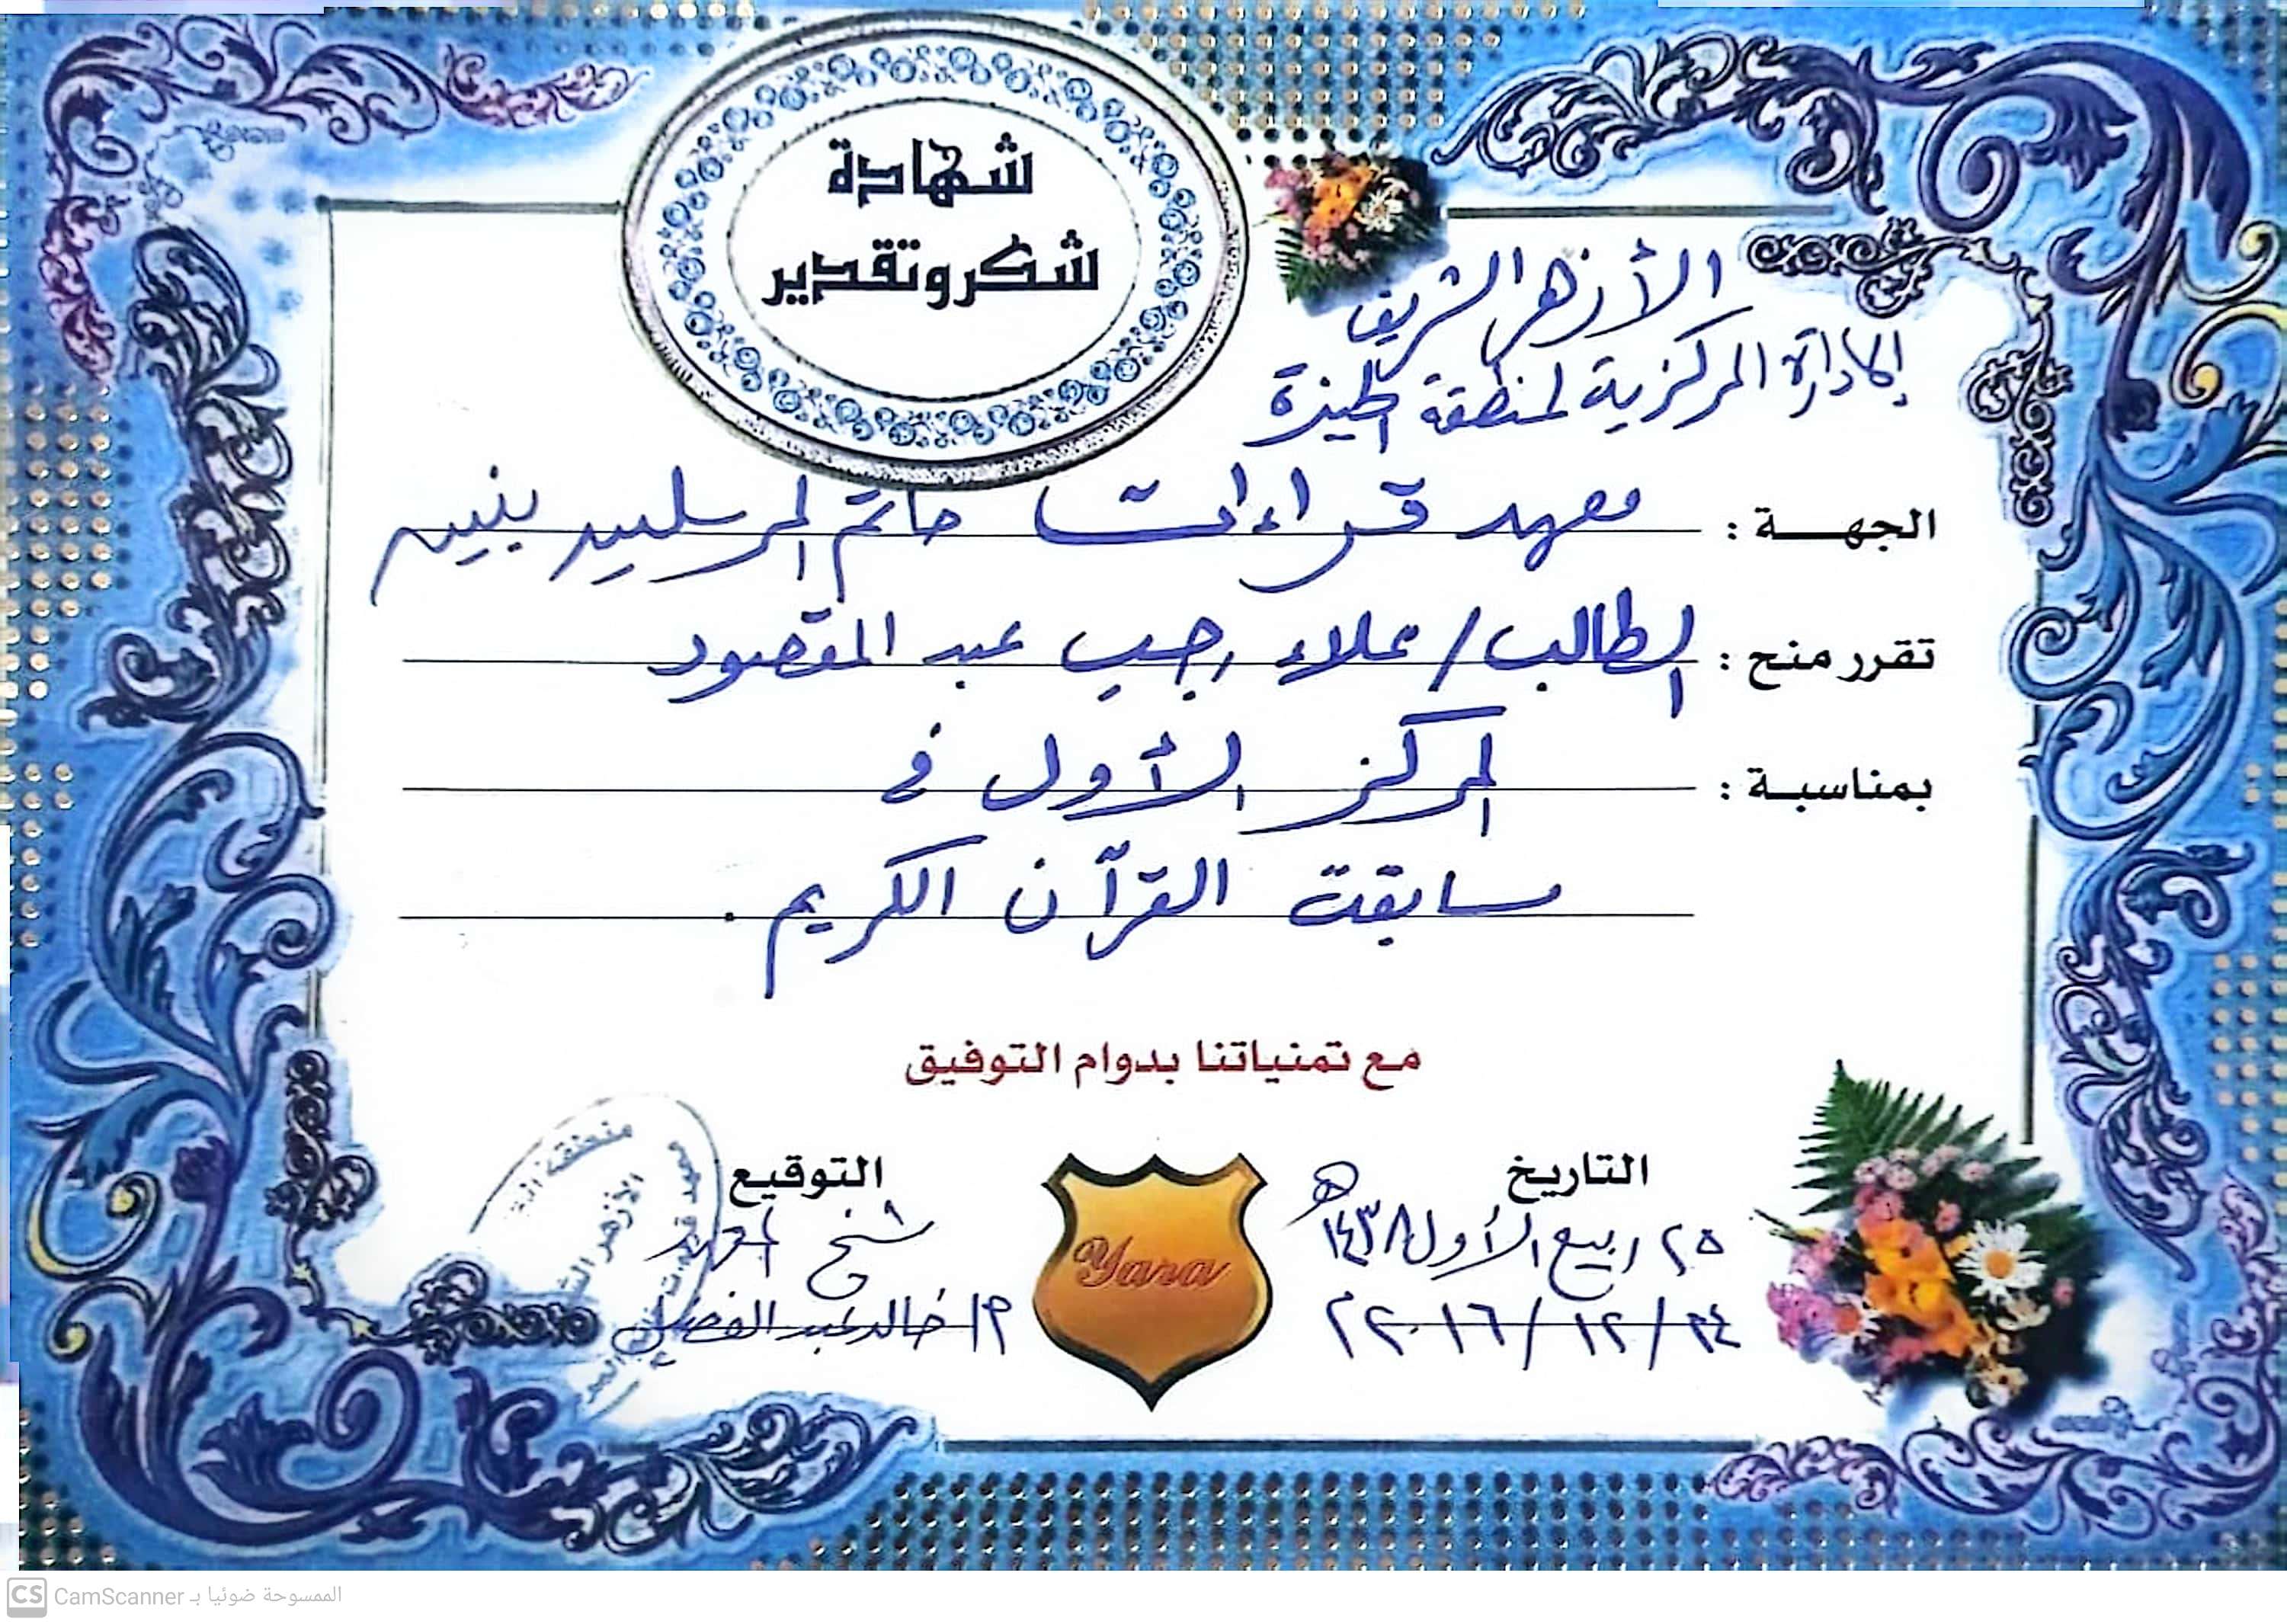 شهادة
شكر وتقدير
الأزهر الشريف
الإدارة المركزية لمنطقة الجيزة
الجهة : معهد قراءات خاتم المرسلين بنين
تقرر منح : الطالب / علاء رجب عبد المقصود
بمناسبة : المركز الأول في
مسابقة القرآن الكريم .
مع تمنياتنا بدوام التوفيق
التاريخ
٢٥ ربيع الأول ١٤٣٨ هـ
٢٤ / ١٢ / ٢٠١٦ م
Yara
التوقيع
شيخ المعهد
م / خالد عبد
منطقة
الأزهر
CS CamScanner الممسوحة ضوئيا بـ